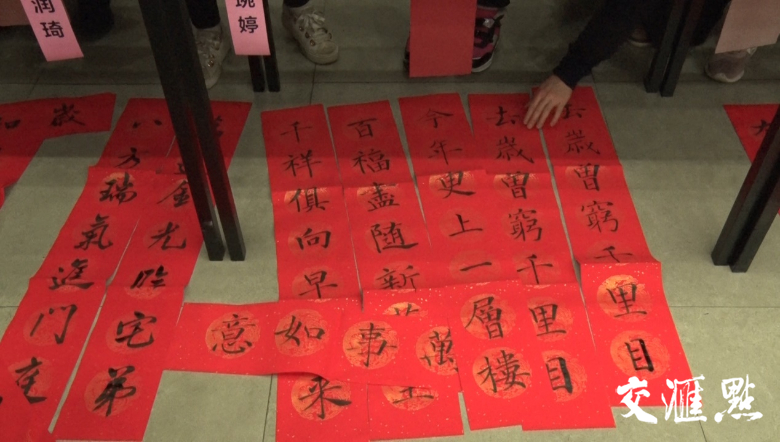 润琦
琬婷
去歲曾窮千里目
去歲曾窮千里目
今年更上一層樓
百福盡隨新
千祥俱向早來
萬事如意
金光臨宅弟
八方瑞氣進門
交匯點